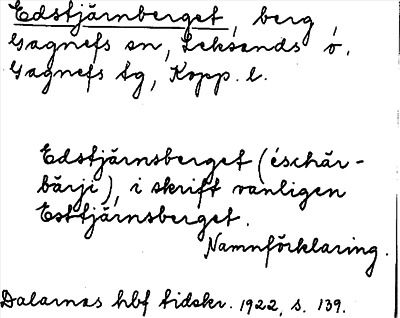 Edstjärnberget, berg
Gagnefs sn, Leksands ö.
Gagnefs tg, Kopp. l.
Edstjärnsberget (éschär-
bärji), i skrift vanligen
Esttjärnsberget.
Namnförklaring.
Dalarnas hbf tidskr. 1922, s. 139.